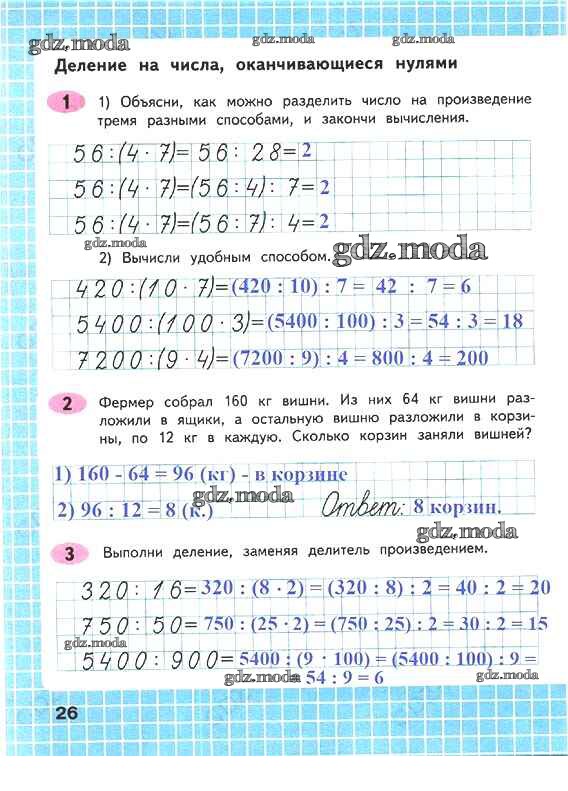 gdz.moda
Деление на числа, оканчивающиеся нулями
1 1) Объясни, как можно разделить число на произведение
тремя разными способами, и закончи вычисления.
56:(4·7)=56:28=2
56:(4·7)=(56:4):7=2
56:(4·7)=(56:7):4=2
gdz.moda
2) Вычисли удобным способом.
gdz.moda
420:(10·7)=(420 : 10) : 7 = 42 : 7 = 6
5400:(100·3)=(5400 : 100) : 3 = 54 : 3 = 18
7200:(9·4)=(7200 : 9) : 4 = 800 : 4 = 200
2 Фермер собрал 160 кг вишни. Из них 64 кг вишни раз-
ложили в ящики, а остальную вишню разложили в корзи-
ны, по 12 кг в каждую. Сколько корзин заняли вишней?
1) 160 - 64 = 96 (кг) - в корзине
gdz.moda
2) 96 : 12 = 8 (к.) Ответ: 8 корзин.
gdz.moda
3 Выполни деление, заменяя делитель произведением.
320:16=320 : (8 · 2) = (320 : 8) : 2 = 40 : 2 = 20
750:50=750 : (25 · 2) = (750 : 25) : 2 = 30 : 2 = 15
gdz.moda
5400:900=5400 : (9 · 100) = (5400 : 100) : 9 =
gdz.moda
= 54 : 9 = 6
26